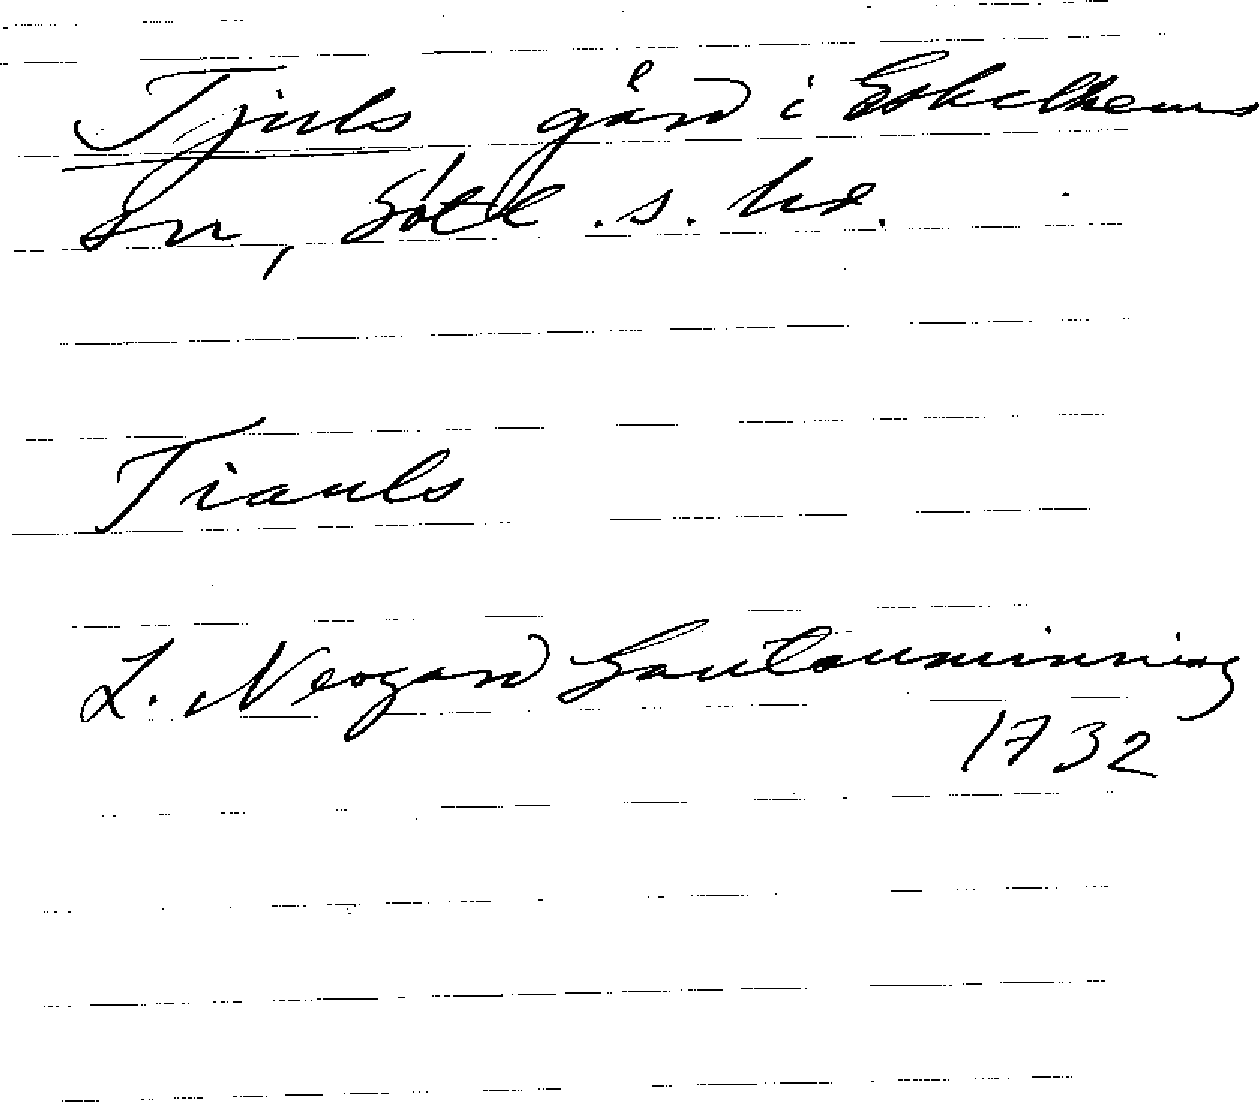 Tjuls gård i Eskelhems
sn, Gotl. s. hd.
Tiauls
L. Neogard Gautauminning
1732